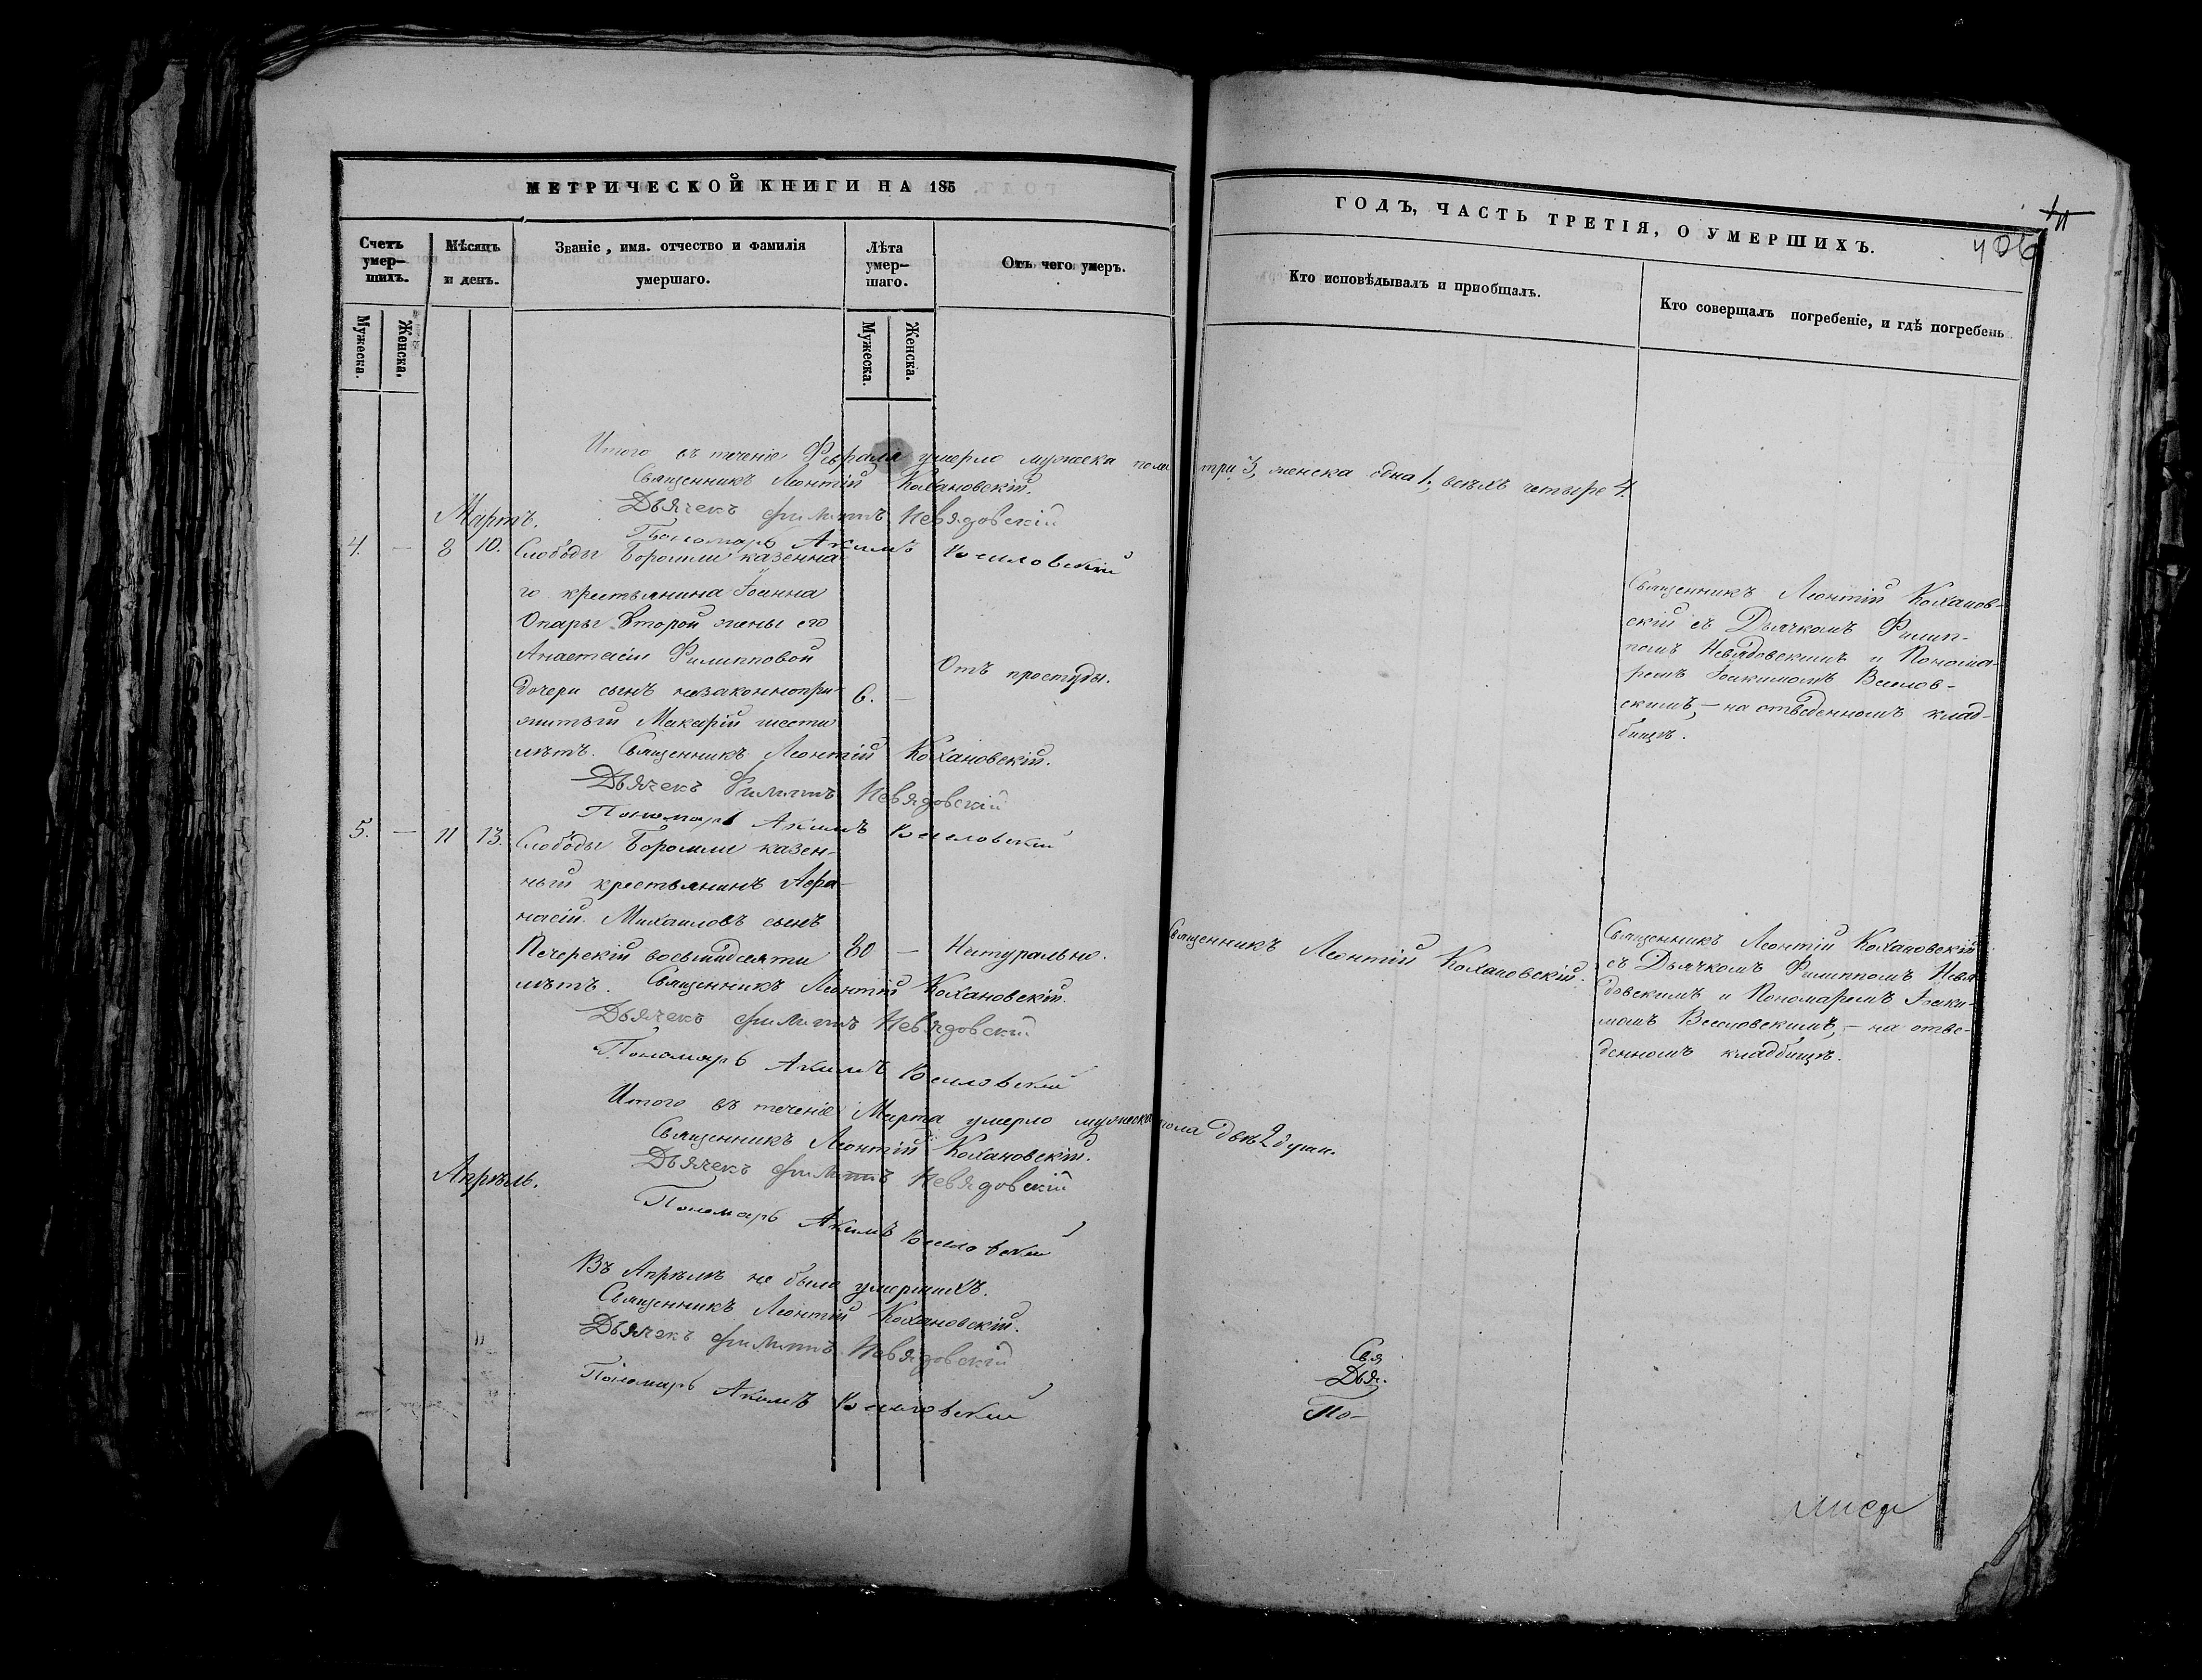 МЕТРИЧЕСКОЙ КНИГИ НА 185
Счетъ умер-шихъ.
Мужеска.
Женска.
Мѣсяцъ и день.
Званіе, имя. отчество и фамилія умершаго.
Лѣта умер-шаго.
Мужеска.
Женска.
Отъ чего умеръ.
ГОДЪ, ЧАСТЬ ТРЕТІЯ, О УМЕРШИХЪ.
406
Кто исповѣдывалъ и пріобщалъ.
Кто совершалъ погребеніе, и гдѣ погребень
Итого въ теченіе Февраля умерло мужеска пола три 3, женска одна 1, всѣхъ четыре 4.
Священникъ Леонтій Кохановскій.
Дьячекъ Филиппъ Невядовскій
Пономарь Акимъ Веселовскій
Мартъ.
4. — 8 10.
Слободы Боромли казенна
го крестьянина Іоанна
Опары второй жены его
Анастасіи Филипповой
дочери сынъ незаконнопри-
житый Макарій шести
лѣтъ. Священникъ Леонтій Кохановскій.
Дьячекъ Филиппъ Невядовскій
Пономарь Акимъ Веселовскій
6. —
Отъ простуды.
Священникъ Леонтій Коханов-
скій съ Дьячкомъ Филип-
помъ Невядовскимъ и Понома-
ремъ Іоакимомъ Веселов-
скимъ, — на отведенномъ клад-
бищѣ.
5. — 11 13.
Слободы Боромли казен-
ный крестьянинъ Афа-
насій Михаиловъ сынъ
Печерскій восьмидесяти
лѣтъ. Священникъ Леонтій Кохановскій.
Дьячекъ Филиппъ Невядовскій
Пономарь Акимъ Веселовскій
80 —
Натурально.
Священникъ Леонтій Кохановскій.
Священникъ Леонтій Кохановскій
съ Дьячкомъ Филиппомъ Невя-
довскимъ и Пономаремъ Іоаки-
момъ Веселовскимъ, — на отве-
денномъ кладбищѣ.
Итого въ теченіе Марта умерло мужеска пола двѣ 2 души.
Священникъ Леонтій Кохановскій.
Дьячекъ Филиппъ Невядовскій
Пономарь Акимъ Веселовскій
Апрѣль.
Въ Апрѣлѣ не было умершихъ.
Священникъ Леонтій Кохановскій.
Дьячекъ Филиппъ Невядовскій
Пономарь Акимъ Веселовскій
Свя
Дья.
По-